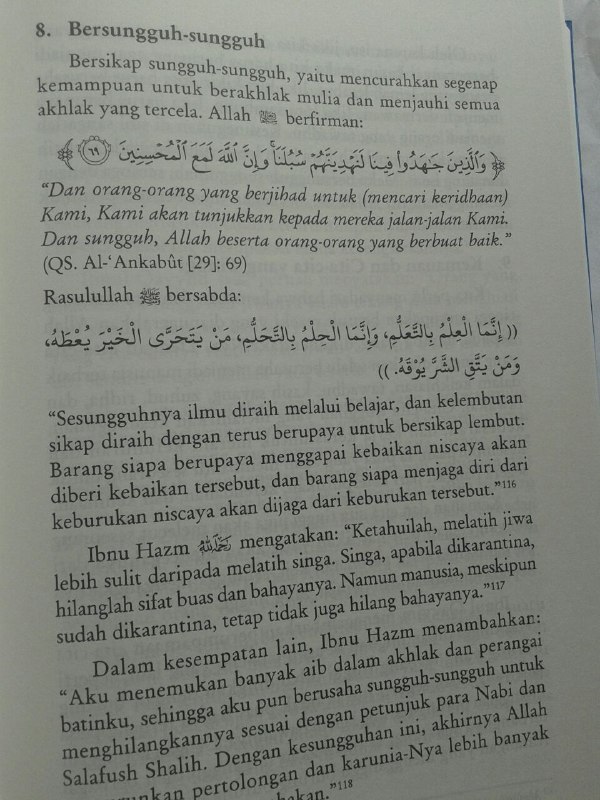 8. Bersungguh-sungguh
Bersikap sungguh-sungguh, yaitu mencurahkan segenap
kemampuan untuk berakhlak mulia dan menjauhi semua
akhlak yang tercela. Allah ﷻ berfirman:
﴿ وَٱلَّذِينَ جَـٰهَدُوا۟ فِينَا لَنَهْدِيَنَّهُمْ سُبُلَنَا ۚ وَإِنَّ ٱللَّهَ لَمَعَ ٱلْمُحْسِنِينَ ٦٩ ﴾
“Dan orang-orang yang berjihad untuk (mencari keridhaan)
Kami, Kami akan tunjukkan kepada mereka jalan-jalan Kami.
Dan sungguh, Allah beserta orang-orang yang berbuat baik.”
(QS. Al-‘Ankabût [29]: 69)
Rasulullah ﷺ bersabda:
(( إِنَّمَا الْعِلْمُ بِالتَّعَلُّمِ، وَإِنَّمَا الْحِلْمُ بِالتَّحَلُّمِ، مَنْ يَتَحَرَّى الْخَيْرَ يُعْطَهُ،
وَمَنْ يَتَّقِ الشَّرَّ يُوْقَهُ. ))
“Sesungguhnya ilmu diraih melalui belajar, dan kelembutan
sikap diraih dengan terus berupaya untuk bersikap lembut.
Barang siapa berupaya menggapai kebaikan niscaya akan
diberi kebaikan tersebut, dan barang siapa menjaga diri dari
keburukan niscaya akan dijaga dari keburukan tersebut.”116
Ibnu Hazm رحمه الله mengatakan: “Ketahuilah, melatih jiwa
lebih sulit daripada melatih singa. Singa, apabila dikarantina,
hilanglah sifat buas dan bahayanya. Namun manusia, meskipun
sudah dikarantina, tetap tidak juga hilang bahayanya.”117
Dalam kesempatan lain, Ibnu Hazm menambahkan:
“Aku menemukan banyak aib dalam akhlak dan perangai
batinku, sehingga aku pun berusaha sungguh-sungguh untuk
menghilangkannya sesuai dengan petunjuk para Nabi dan
Salafush Shalih. Dengan kesungguhan ini, akhirnya Allah
pertolongan dan karunia-Nya lebih banyak
118